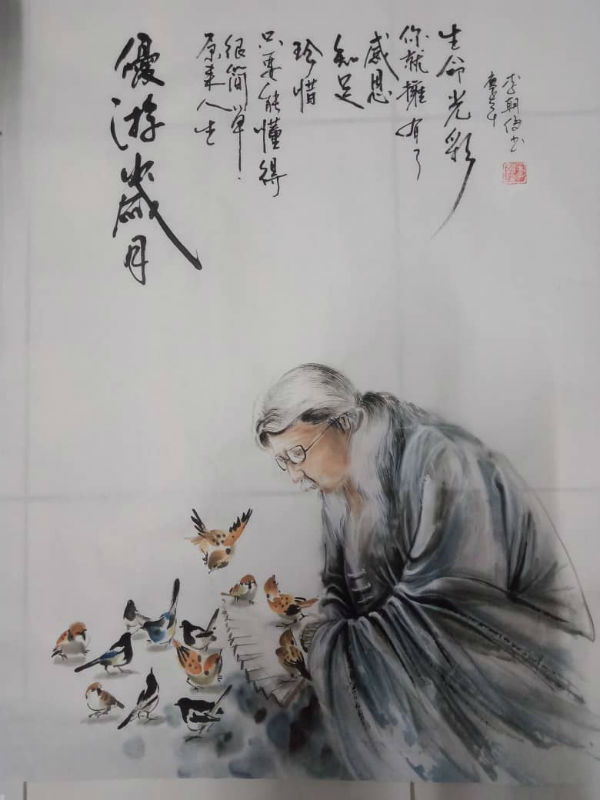 優游歲月
原來人生
很簡單!
只要能懂得
珍惜
知足
感恩
你就擁有了
生命光彩